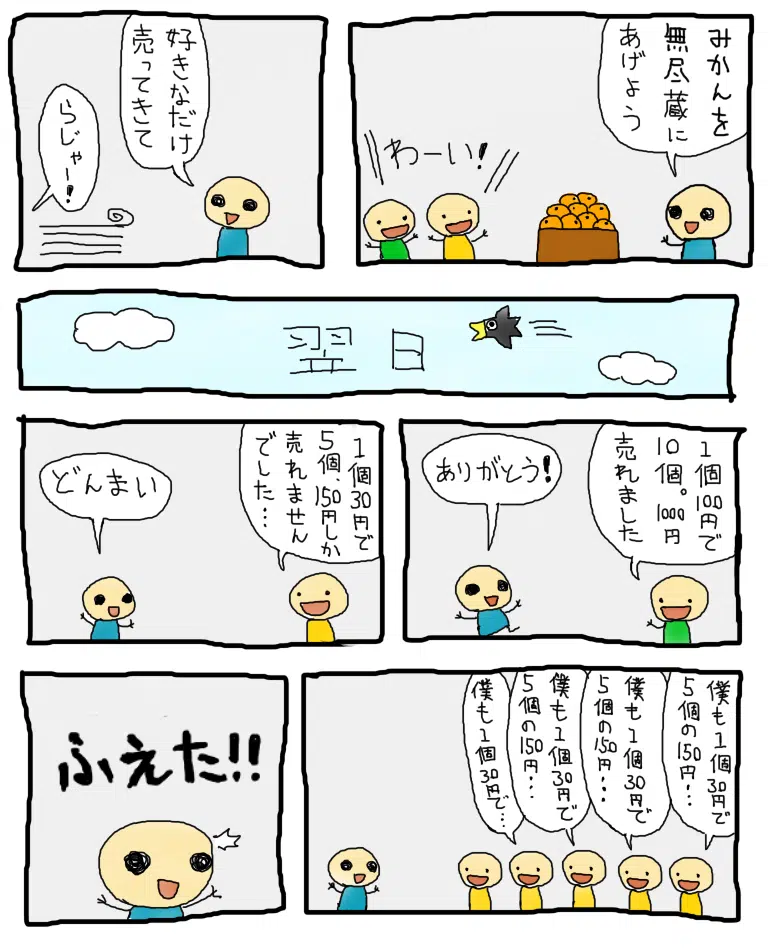 みかんを
無尽蔵に
あげよう
わーい!
好きなだけ
売ってきて
らじゃー!
翌日
1個100円で
10個。1000円
売れました
ありがとう!
1個30円で
5個、150円しか
売れません
でした…
どんまい
僕も1個30円で
5個の150円!…
僕も1個30円で
5個の150円!…
僕も1個30円で
5個の150円!…
僕も1個30円で…
ふえた!!